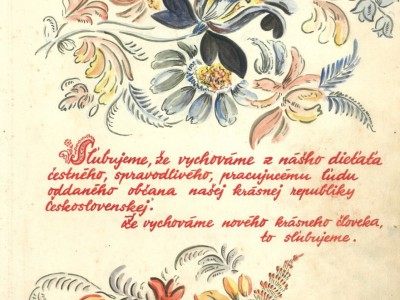 Sľubujeme, že vychováme z nášho dieťaťa
čestného, spravodlivého, pracujúcemu ľudu
oddaného občana našej krásnej republiky
Československej.
Že vychováme nového krásneho človeka,
to sľubujeme.